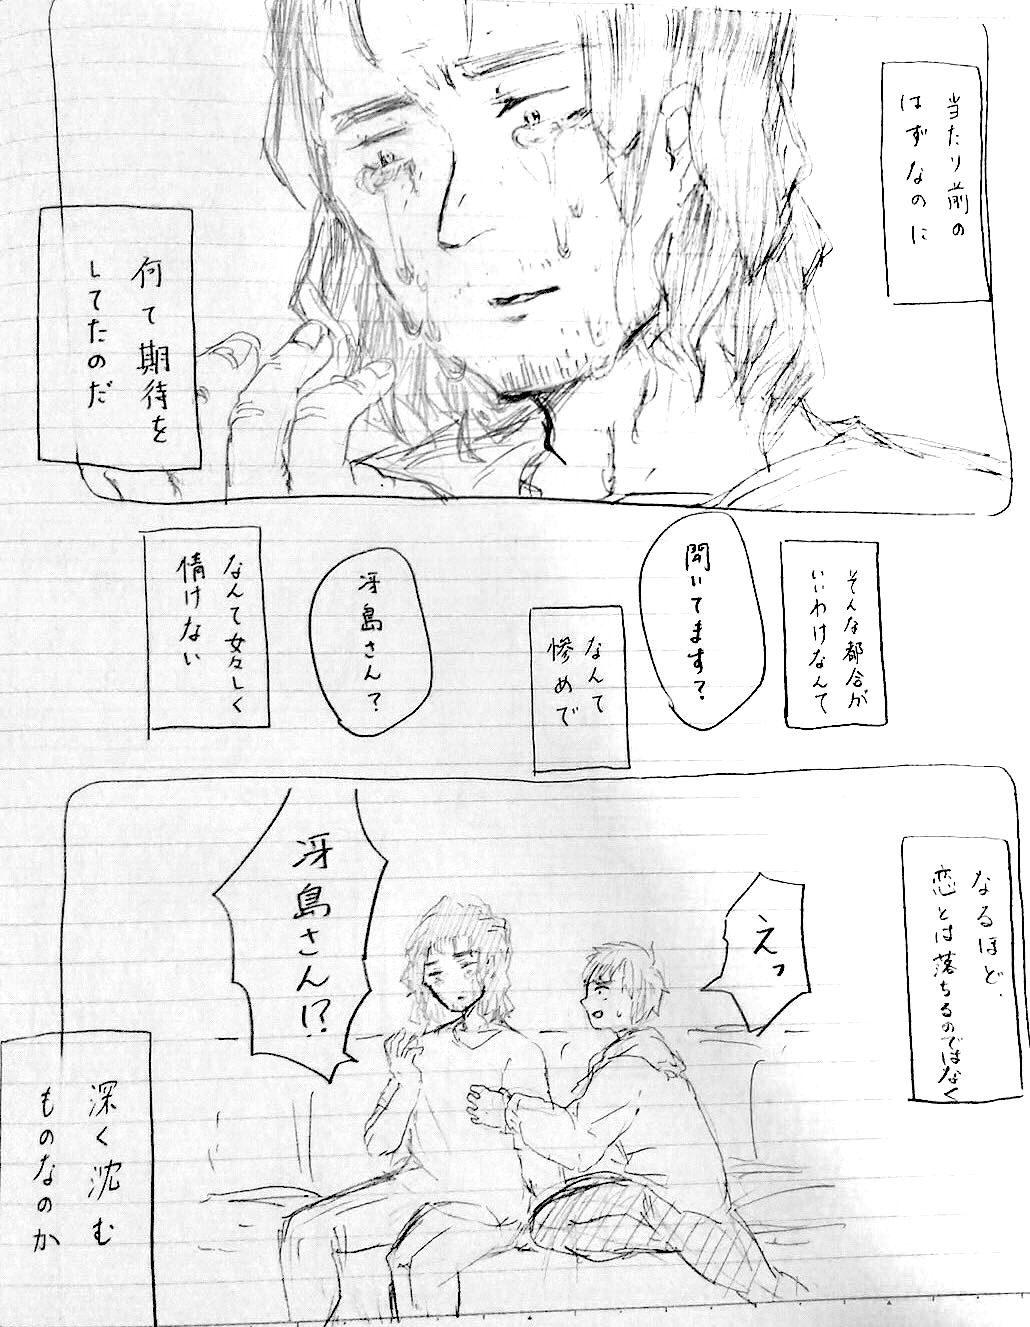 当たり前の
はずなのに
何て期待を
してたのだ
そんな都合が
いいわけなんて
聞いてます？
なんて
惨めで
冴島さん？
なんて女々しく
情けない
なるほど、
恋とは落ちるのではなく
えっ
冴島さん!?
深く沈む
ものなのか